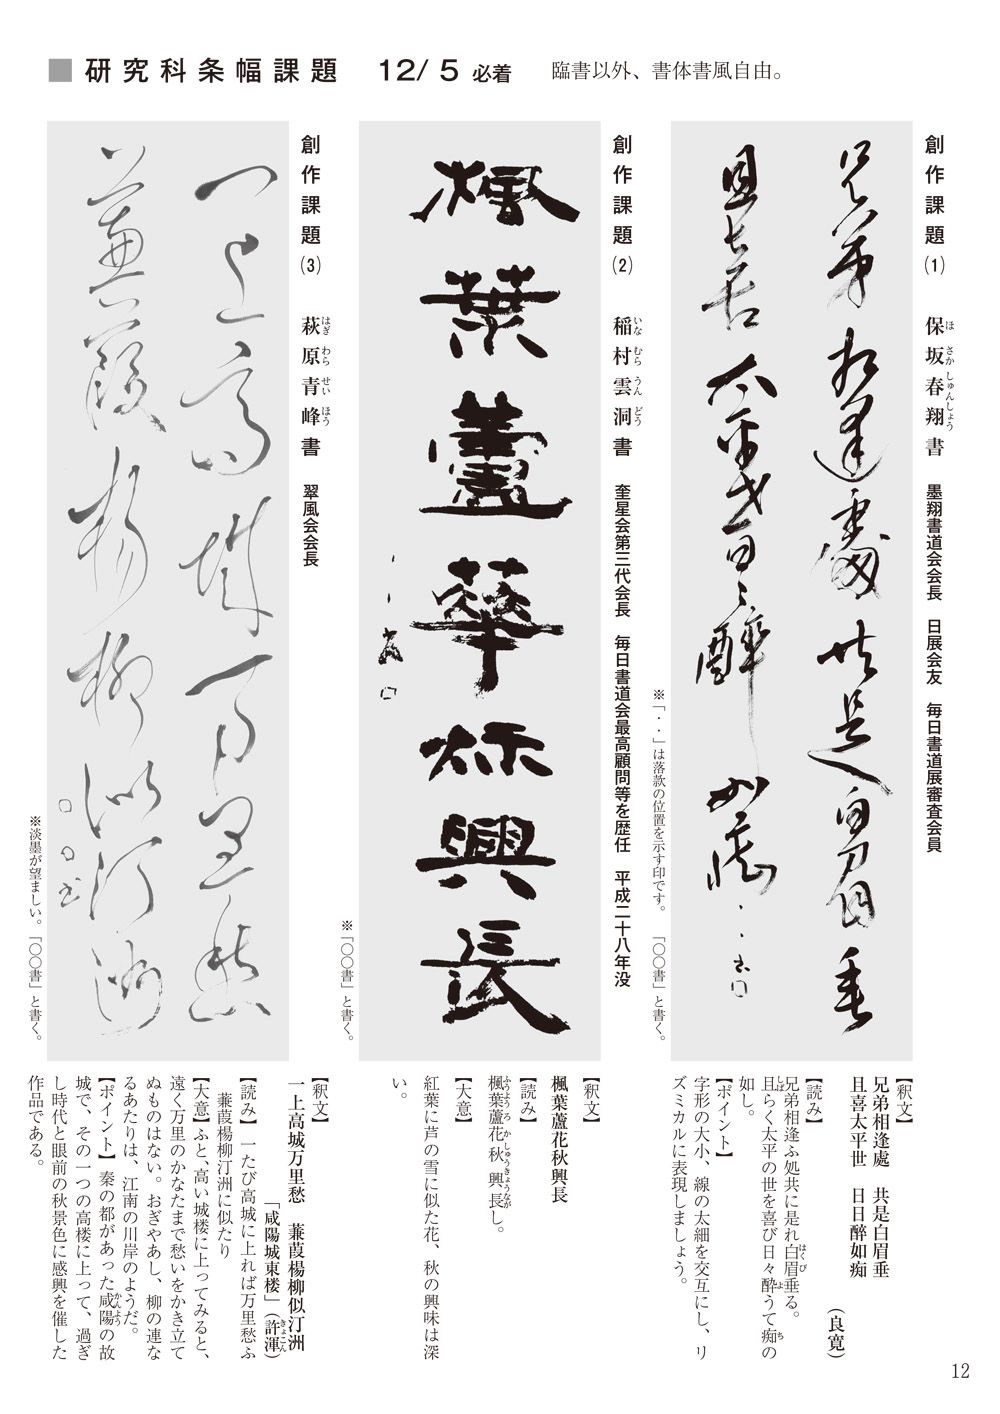 ■ 研究科条幅課題　12/5 必着　臨書以外、書体書風自由。
創作課題(1)　保坂春翔書　墨翔書道会会長　日展会友　毎日書道展審査会員
ほ さか しゅんしょう
兄弟相逢處共是白眉垂
且喜太平世日日醉如痴
※「・・」は落款の位置を示す印です。　「〇〇書」と書く。
【釈文】
兄弟相逢處　共是白眉垂
且喜太平世　日日醉如痴
（良寛）
【読み】
兄弟相逢ふ処共に是れ白眉垂る。
はくび
且らく太平の世を喜び日々酔うて痴の
しば よ ち
如し。
【ポイント】
字形の大小、線の太細を交互にし、リ
ズミカルに表現しましょう。
創作課題(2)　稲村雲洞書　奎星会第三代会長　毎日書道会最高顧問等を歴任　平成二十八年没
いな むら うん どう
楓葉蘆華秌興長
※「〇〇書」と書く。
【釈文】
楓葉蘆花秋興長
【読み】
楓葉蘆花秋興長し。
ふうようろかしゅうきょうなが
【大意】
紅葉に芦の雪に似た花、秋の興味は深
い。
創作課題(3)　萩原青峰書　翠風会会長
はぎ わら せい ほう
一上高城万里愁
蒹葭楊柳似汀洲
※淡墨が望ましい。「〇〇書」と書く。
【釈文】
一上高城万里愁　蒹葭楊柳似汀洲
「咸陽城東楼」（許渾）
きょこん
【読み】一たび高城に上れば万里愁ふ
蒹葭楊柳汀洲に似たり
【大意】ふと、高い城楼に上ってみると、
遠く万里のかなたまで愁いをかき立て
ぬものはない。おぎやあし、柳の連な
るあたりは、江南の川岸のようだ。
【ポイント】秦の都があった咸陽の故
かんよう
城で、その一つの高楼に上って、過ぎ
し時代と眼前の秋景色に感興を催した
作品である。
12